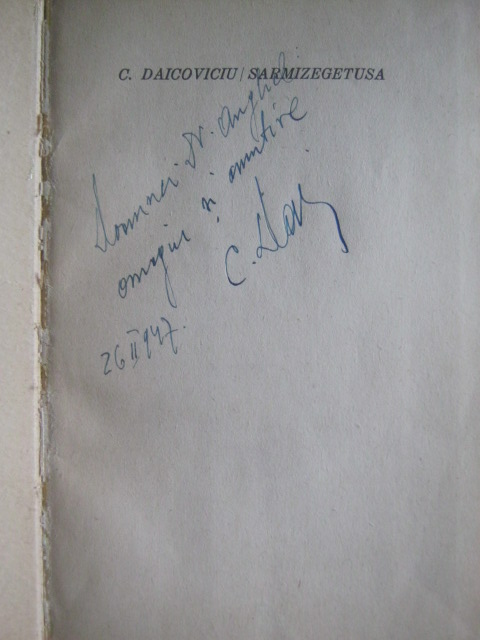 C. DAICOVICIU / SARMIZEGETUSA
Doamnei Dr. Anghel
omagiu și amintire
C. Daic
26 II 947.